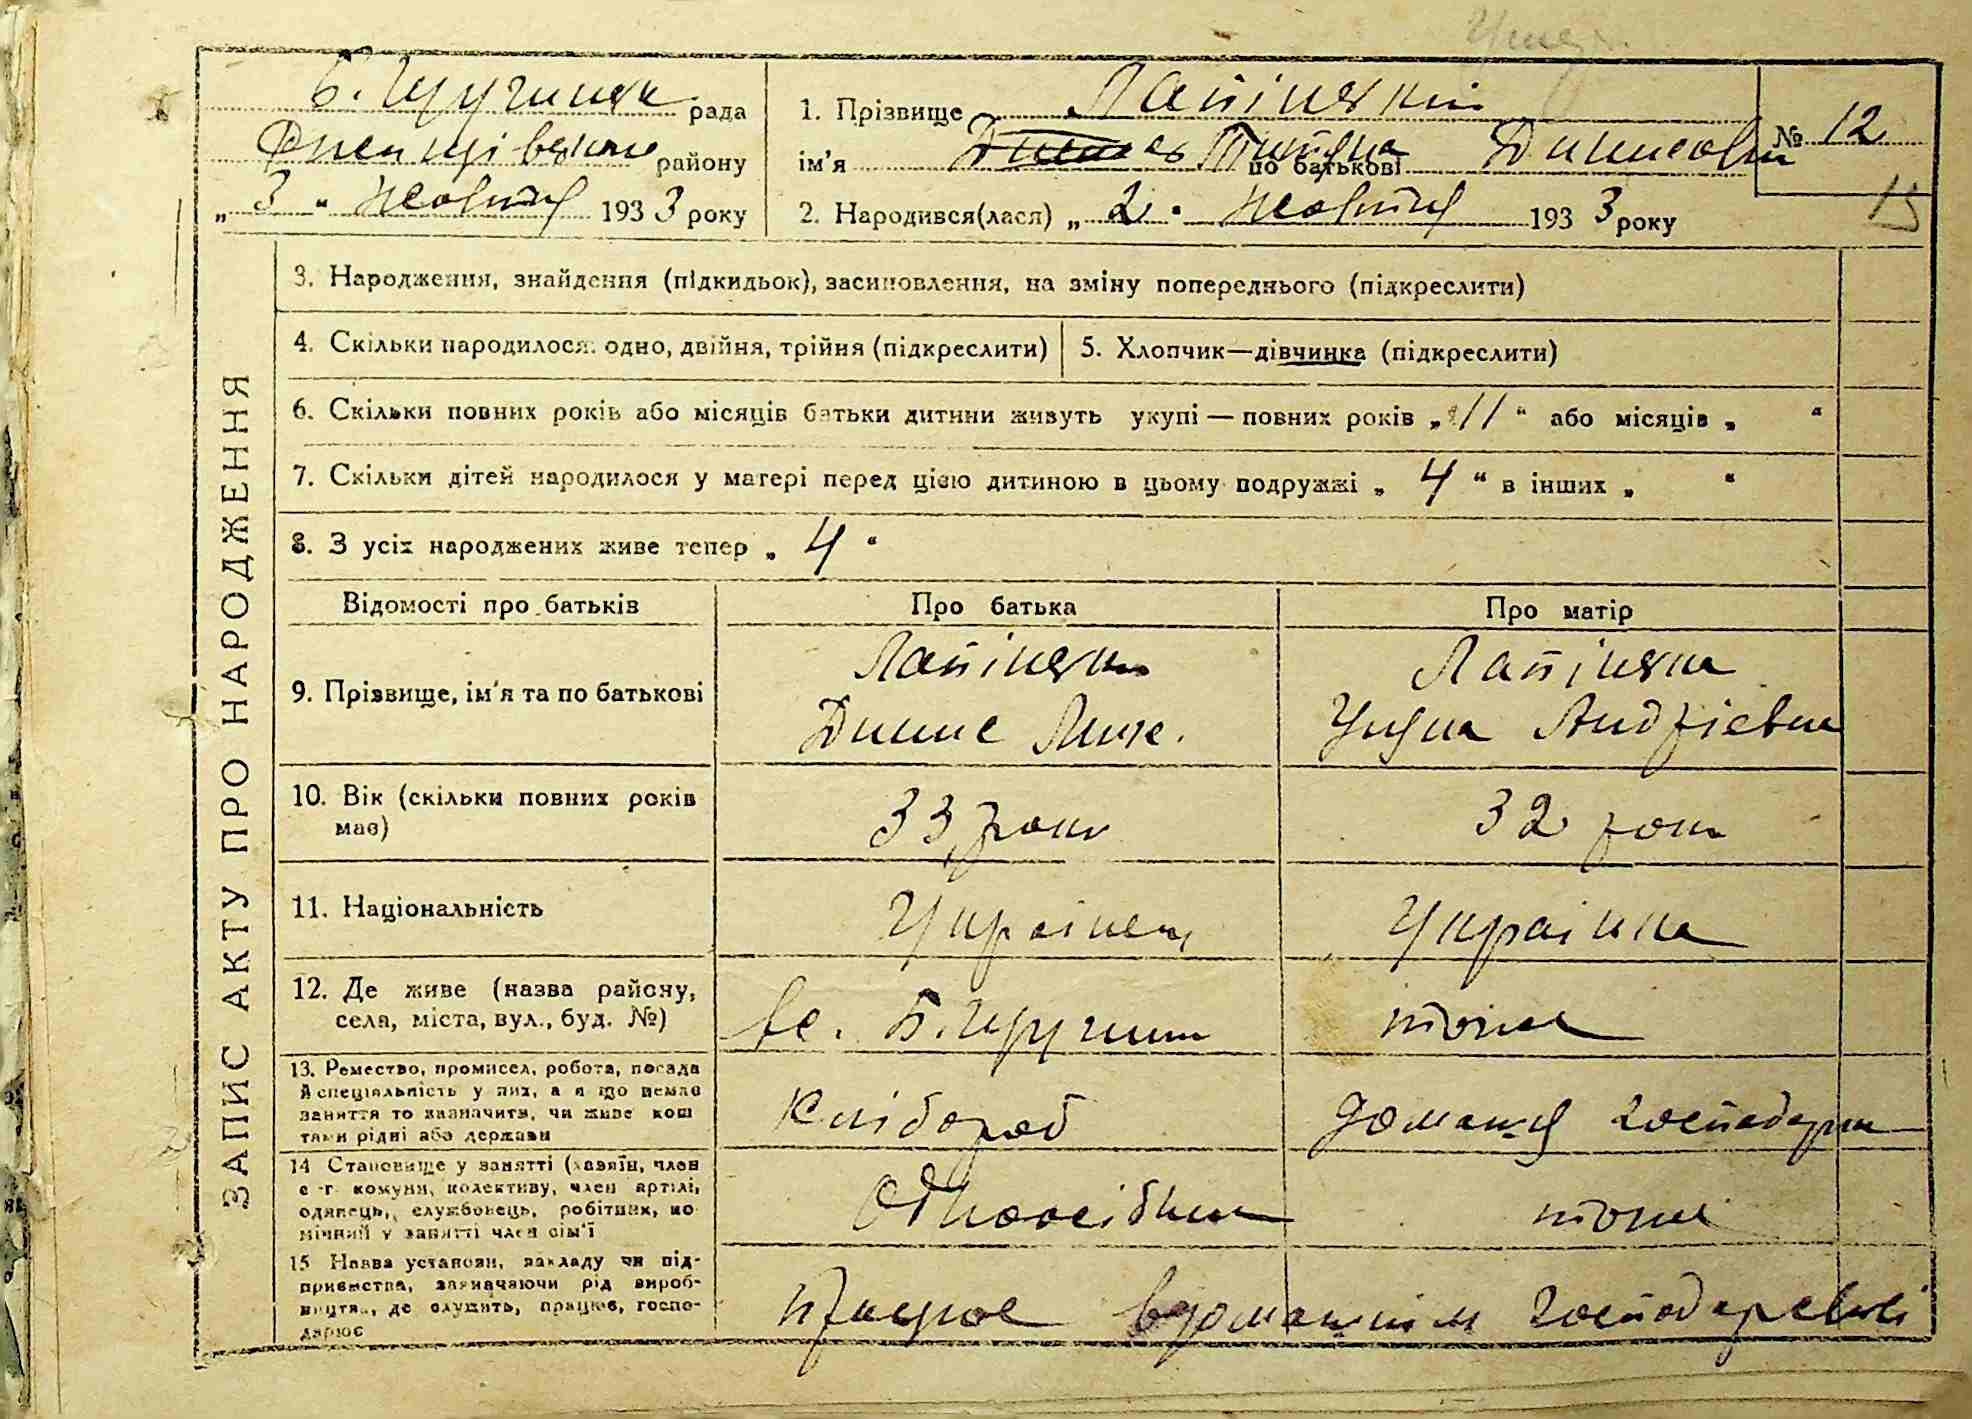 Б. Чугинск рада
району
„3“ жовтня 1933 року
1. Прізвище Лапінский
ім'я Титяна по батькові Динисовна
2. Народився(лася) „2“ жовтня 1933 року
№ 12
15
ЗАПИС АКТУ ПРО НАРОДЖЕННЯ
3. Народження, знайдення (підкидьок), засиновлення, на зміну попереднього (підкреслити)
4. Скільки народилося: одно, двійня, трійня (підкреслити)
5. Хлопчик—дівчинка (підкреслити)
6. Скільки повних років або місяців батьки дитини живуть укупі — повних років „11“ або місяців „ “
7. Скільки дітей народилося у матері перед цією дитиною в цьому подружжі „4“ в інших „ “
8. З усіх народжених живе тепер „4“
Відомості про батьків
Про батька
Про матір
9. Прізвище, ім'я та по батькові
Лапінский
Динис
Лапінска
Андрієвна
10. Вік (скільки повних років
має)
33 роки
32 роки
11. Національність
Українец
Українка
12. Де живе (назва району,
села, міста, вул., буд. №)
с.
тоже
13. Ремество, промисел, робота, посада
й спеціяльність у них, а якщо немає
заняття то зазначити, чи живе кош
тами рідні або держави
Хлібороб
домашня господарка
14 Становище у занятті (хазяїн, член
с-г комуни, колективу, член артілі,
одинець, службовець, робітник, по
мічний у занятті член сім'ї
Одноосібник
тоже
15 Назва установи, закладу чи під-
приємства, зазначаючи рід вироб-
ництва, де служить, працює, госпо-
дарює
працює в домашнім господарстві